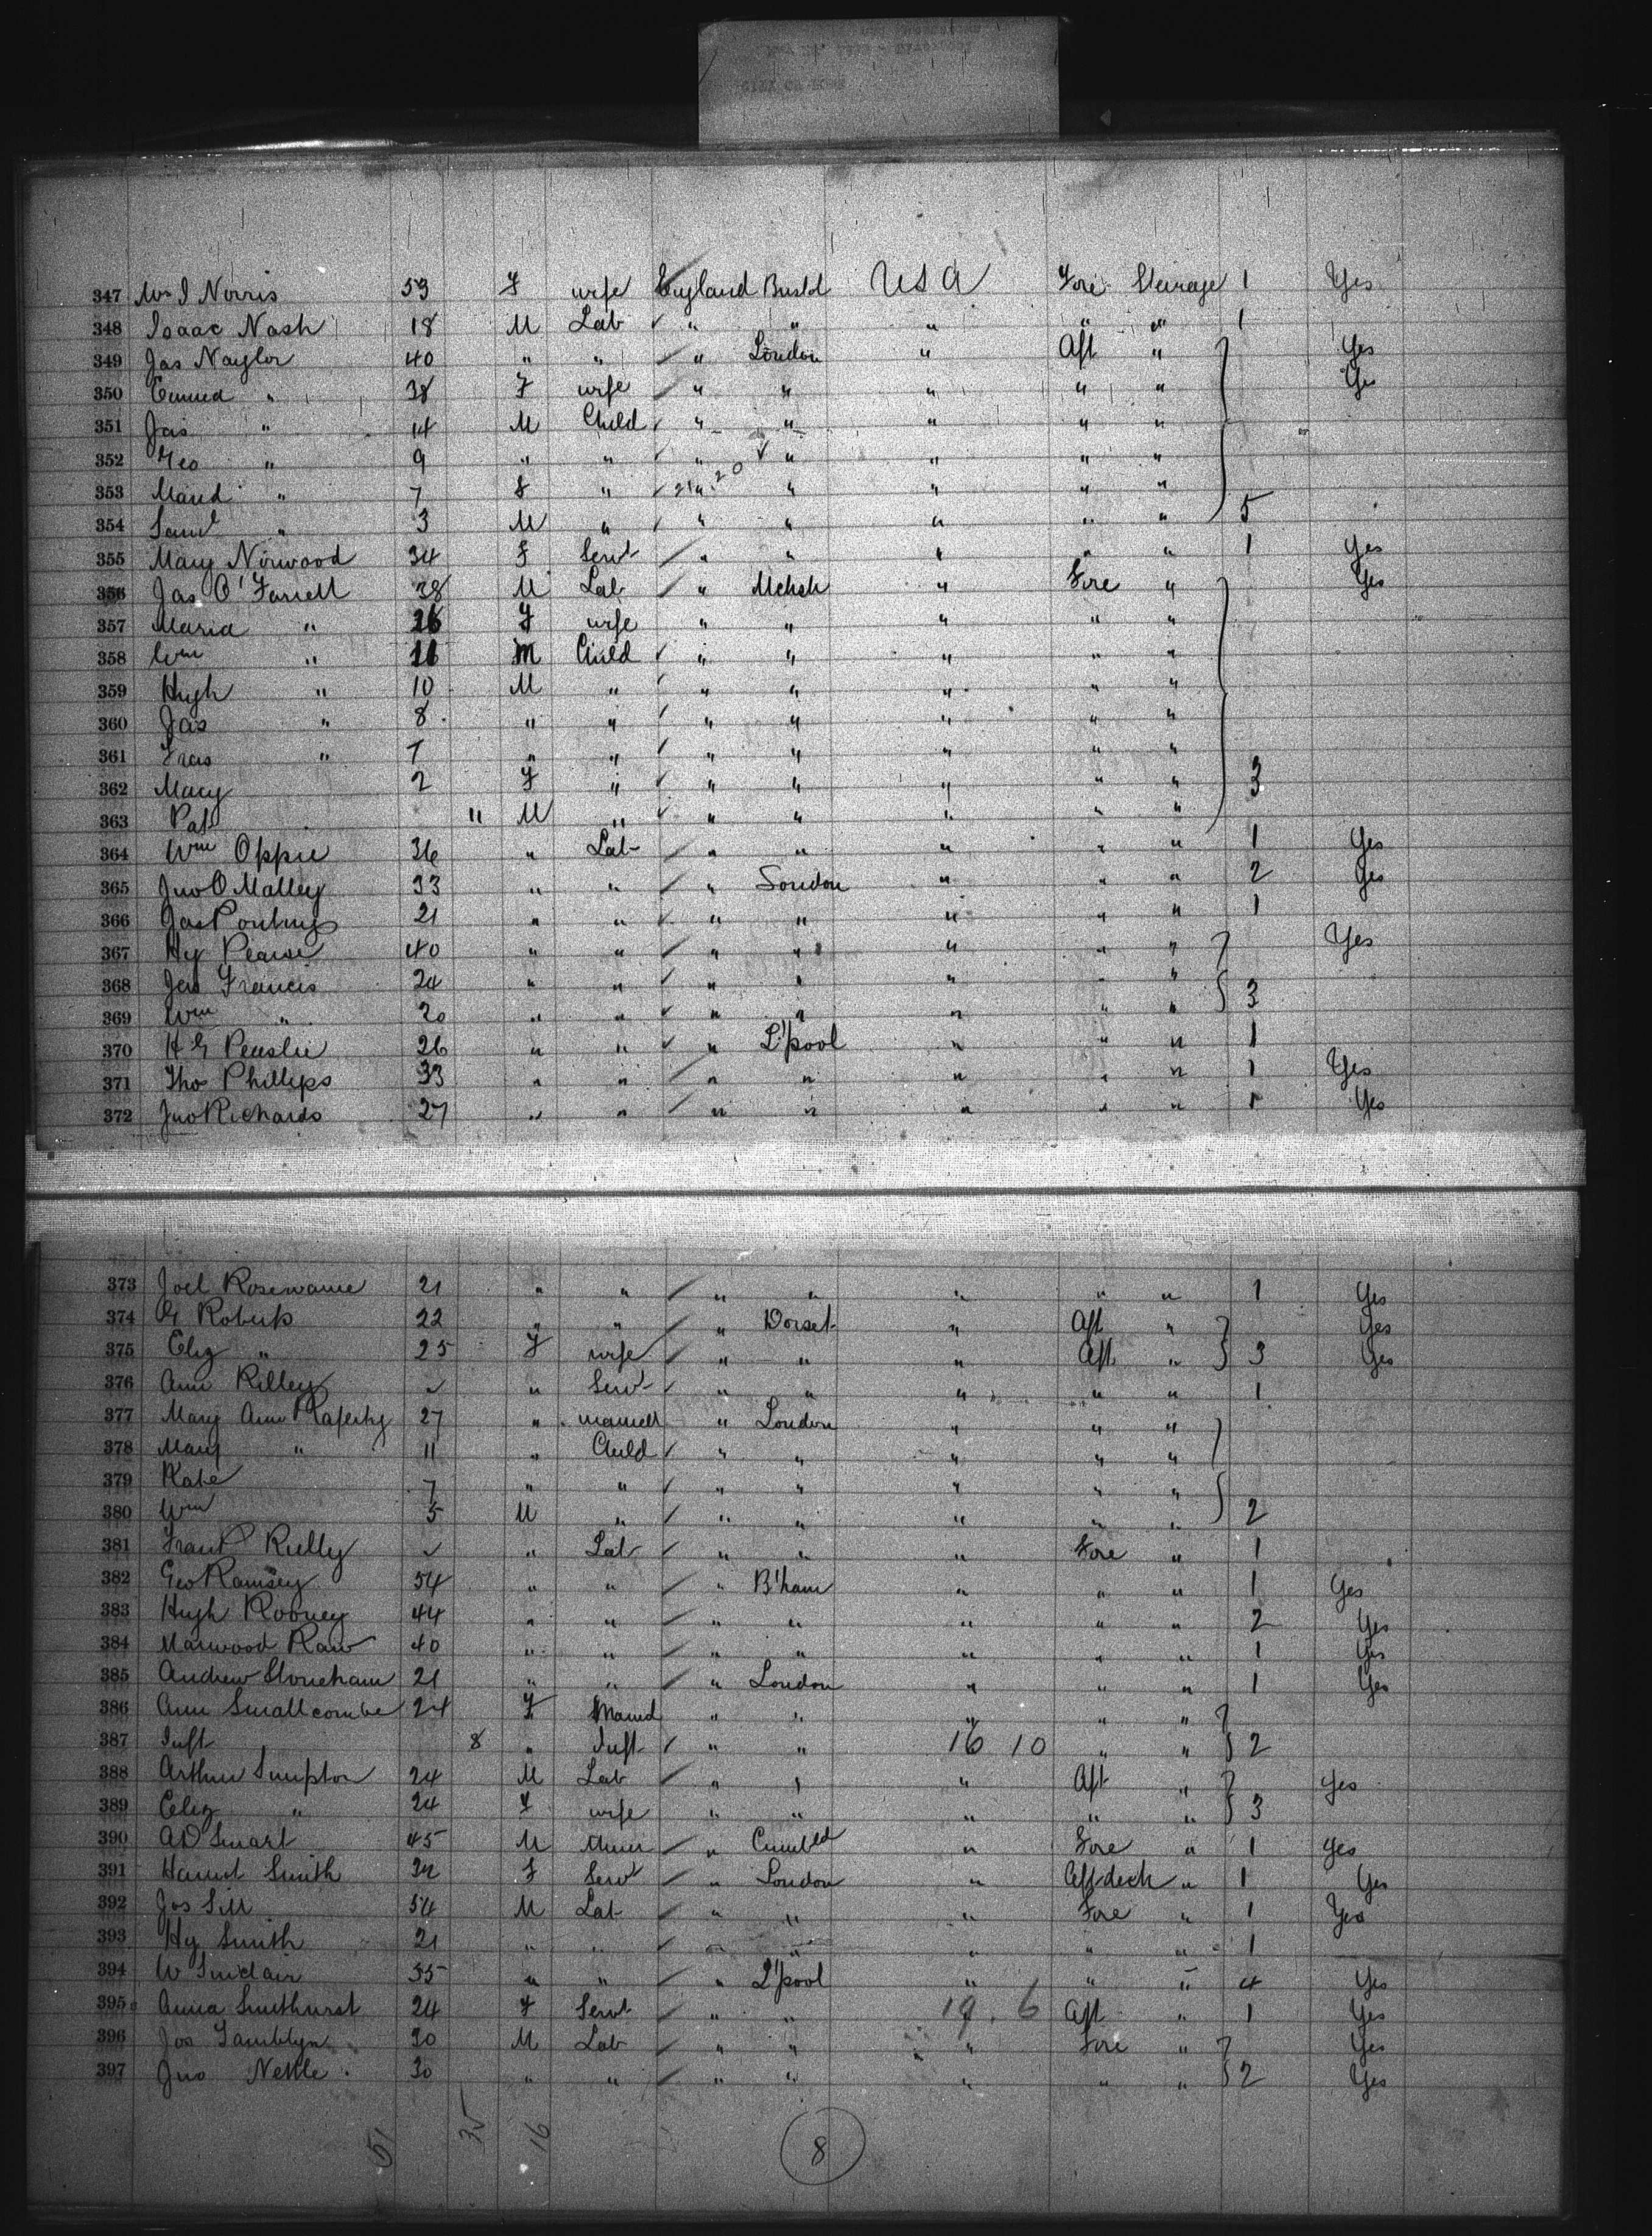 CITY OF ROME
347 Mrs J Norris 53 F wife England Bristd USA Fore Steerage 1 Yes
348 Isaac Nash 18 M Lab " " " " " 1
349 Jas Naylor 40 " " " London " Aft " Yes
350 " 38 F wife " " " " " Yes
351 Jas " 14 M Child " " " " "
352 Geo " 9 " " " " " " "
353 Maud " 7 F " " " " " "
354 Saml " 3 M " " " " " " 5
355 Mary Norwood 34 F Servt " " " " " 1 Yes
356 Jas O'Farrell 38 M Lab " " Fore " Yes
357 Maria " F wife " " " " "
358 Wm " M Child " " " " "
359 Hugh " 10 M " " " " " "
360 Jas " 8 " " " " " " "
361 Fras " 7 " " " " " " "
362 Mary 2 F " " " " " " 3
363 Pat " M " " " " " "
364 Wm Oppie 36 " Lab " " " " " 1 Yes
365 Jno O Malley 33 " " " London " " " 2 Yes
366 Jas 21 " " " " " " " 1
367 Hy Pearse 40 " " " " " " " Yes
368 Francis 24 " " " " " " " 3
369 Wm " 20 " " " " " " "
370 H G Peaslie 26 " " " L'pool " " " 1
371 Tho Phillips 33 " " " " " " " 1 Yes
372 Jno Richards 27 " " " " " " " 1 Yes
373 Joel Rosewarne 21 " " " " " " " 1 Yes
374 G Roberts 22 " " " Dorset " Aft " Yes
375 Eliz " 25 F wife " " " Aft " 3 Yes
376 Ann Rilley ✓ " Servt " " " " " 1
377 Mary Ann Raferty 27 " married " London " " "
378 Mary " 11 " Child " " " " "
379 Kate 7 " " " " " " "
380 Wm 5 M " " " " " " 2
381 Frank Rielly ✓ " Lab " " " Fore " 1
382 Geo Ramsey 54 " " " B'ham " " " 1 Yes
383 Hugh Rooney 44 " " " " " " " 2 Yes
384 Marwood Raw 40 " " " " " " " 1 Yes
385 Andrew Stoneham 21 " " " London " " " 1 Yes
386 Ann Smallcombe 24 F Marrd " " " " "
387 Inft 8 " Inft " " 16 10 " " 2
388 Arthur Simpton 24 M Lab " " " Aft " Yes
389 Eliz " 24 F wife " " " " " 3
390 A D Smart 45 M Miner " Cumbld " Fore " 1 Yes
391 Harriet Smith F Servt " London " Aft deck " 1 Yes
392 Jos Sill 54 M Lab " " " Fore " 1 Yes
393 Hy Smith 21 " " " " " " " 1
394 W Sinclair 35 " " " L'pool " " " 4 Yes
395 Anna Smethurst 24 F Servt " " 19. 6 Aft " 1 Yes
396 Jos Tamblyn 30 M Lab " " " Fore " Yes
397 Jno Nettle 30 " " " " " " " 2 Yes
51 35 16 8